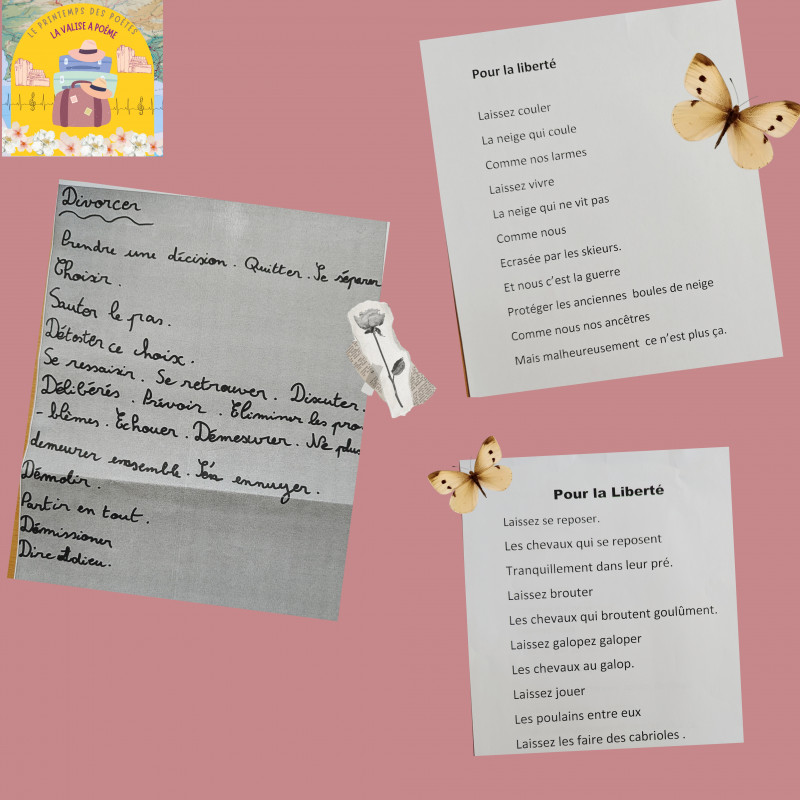 LE PRINTEMPS DES POÈTES
LA VALISE A POÈME
Divorcer
Prendre une décision. Quitter. Se séparer
Choisir.
Sauter le pas.
Détester ce choix.
Se ressaisir. Se retrouver. Discuter.
Délibérés. Prévoir. Eliminer les pro
-blèmes. Echouer. Démesurer. Ne plus
demeurer ensemble. S'en ennuyer.
Démolir.
Partir en tout.
Démissioner
Dire Adieu.
Pour la liberté
Laissez couler
La neige qui coule
Comme nos larmes
Laissez vivre
La neige qui ne vit pas
Comme nous
Ecrasée par les skieurs.
Et nous c'est la guerre
Protéger les anciennes boules de neige
Comme nous nos ancêtres
Mais malheureusement ce n'est plus ça.
Pour la Liberté
Laissez se reposer.
Les chevaux qui se reposent
Tranquillement dans leur pré.
Laissez brouter
Les chevaux qui broutent goulûment.
Laissez galopez galoper
Les chevaux au galop.
Laissez jouer
Les poulains entre eux
Laissez les faire des cabrioles .